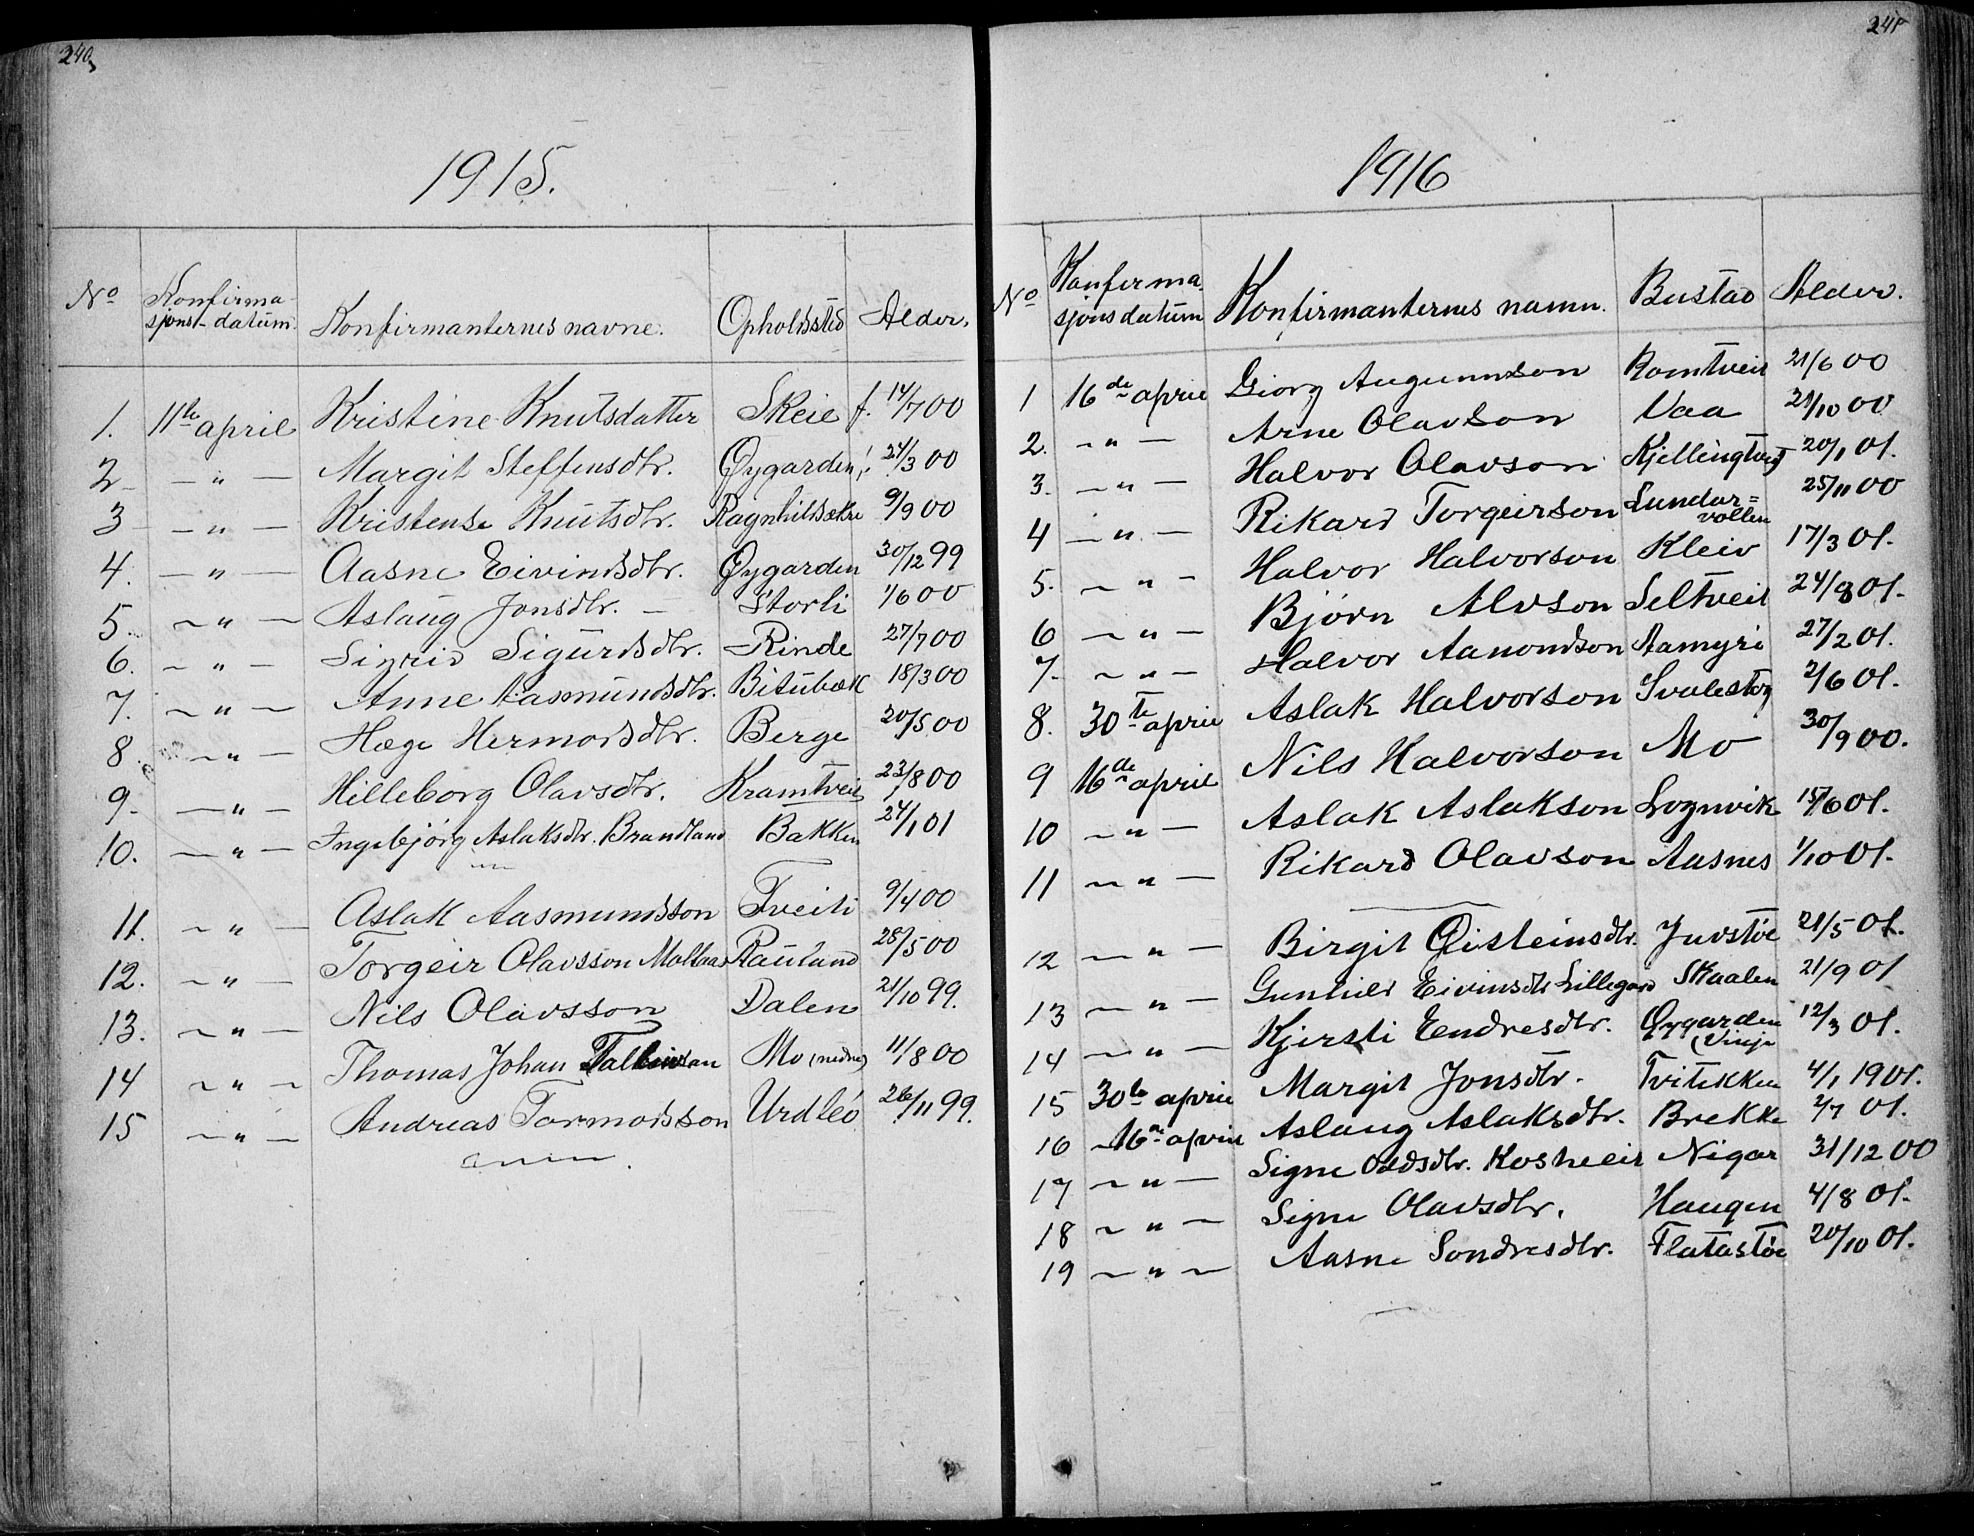 240
1915.
No Konfirma-sjons-datum. Konfirmanternes navne. Opholdssted Alder.
1. 11te april Kristine Knutsdatter Skeie f. 14/7 00
2 — " — Margit Steffensdtr. Øygarden 24/3 00
3 — " — Kristense Knutsdtr. Ragnhildsækre 9/9 00
4. — " — Aasne Eivindsdtr. Øygarden 30/12 99
5. — " — Aslaug Jonsdtr. — Storli 1/6 00
6. — " — Sigrid Sigurdsdtr. Rinde 27/7 00
7. — " — Anne Aasmundsdtr. Bitubæk 18/3 00
8 — " — Hæge Hermodsdtr. Berge 20/5 00
9. — " — Hilleborg Olavsdtr. Kramtveit 23/8 00
10. — " — Ingebjörg Aslaksdtr. Brandland Bakken 24/1 01
11. — " — Aslak Aasmundsson Tveiti 9/4 00
12. — " — Torgeir Olavsson Rauland 28/5 00
13. — " — Nils Olavsson Dalen 21/10 99.
14 — " — Thomas Johan Mo (nedre) 11/8 00
15 — " — Andreas Tormodsson Urdbö 26/11 99.
241
1916
No Konfirma-sjons datum Konfirmanternes namn. Bustad Alder.
1 16de april Giorg Augunnson Romtveit 21/6 00
2. — " — Arne Olavson Vaa 21/10 00
3. — " — Halvor Olavson Kjellingtveit 20/1 01.
4 — " — Rikard Torgeirson Lundar=vollen 25/11 00
5. — " — Halvor Halvorson Kleiv 17/3 01.
6 — " — Bjørn Alvson Seltveit 24/8 01.
7. — " — Halvor Aamondson Aamyri 27/2 01.
8. 30te april Aslak Halvorson Svalestog 2/6 01.
9 16de april Nils Halvorson Mo 30/9 00.
10 — " — Aslak Aslakson Lognvik 15/6 01.
11 — " — Rikard Olavson Aasnes 1/10 01.
12 — " — Birgit Øisteinsdtr. Juvstøe 21/5 01.
13 — " — Gunhild Eivinsdtr Lillegard Skaalen 21/9 01
14 — " — Kjersti Endresdtr. Øygarden (Vinje 12/3 01.
15 30te april Margit Jonsdtr. Tvitekken 4/1 1901.
16 16de april Aslaug Aslaksdtr. Brekke 2/7 01.
17 — " — Signe Oddsdtr. Kostveit Nigar 31/12 00
18 — " — Signe Olavsdtr. Haugen 4/8 01.
19 — " — Aasne Sondresdtr. Flatastøe 20/10 01.